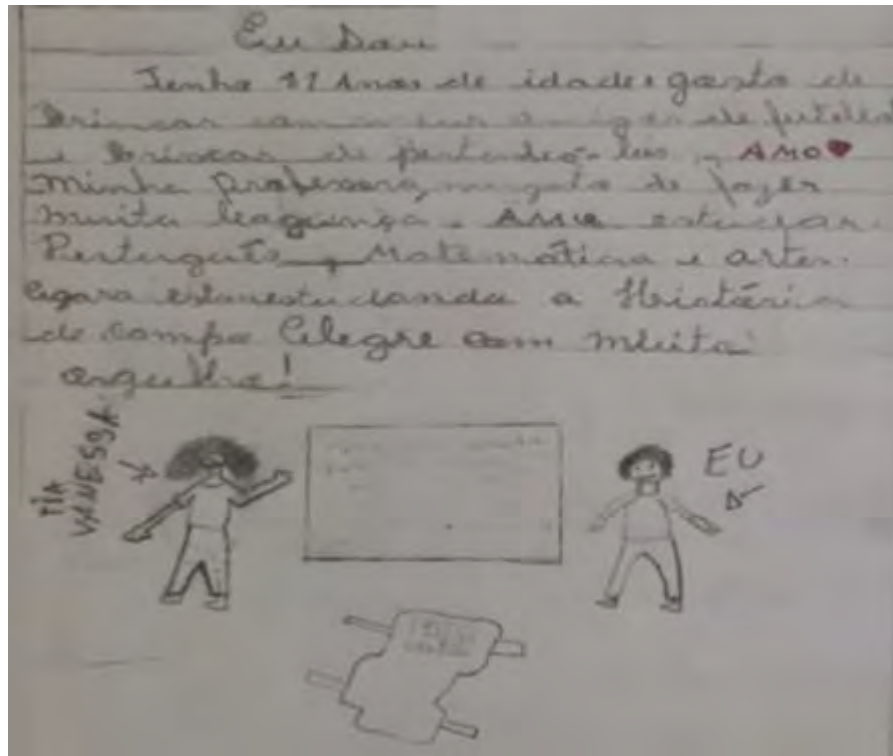 Eu Sou
Tenho 11 Anos de idade, gosto de
Brincar com meus amigos de futebol
e Brincar de AMO
Minha professora, gosto de fazer
muita bagunça. AMO estudar.
Português, Matemática e artes.
Agora estou estudando a História
de Campo Alegre com muita
orgulho!
TIA
VANESSA
EU